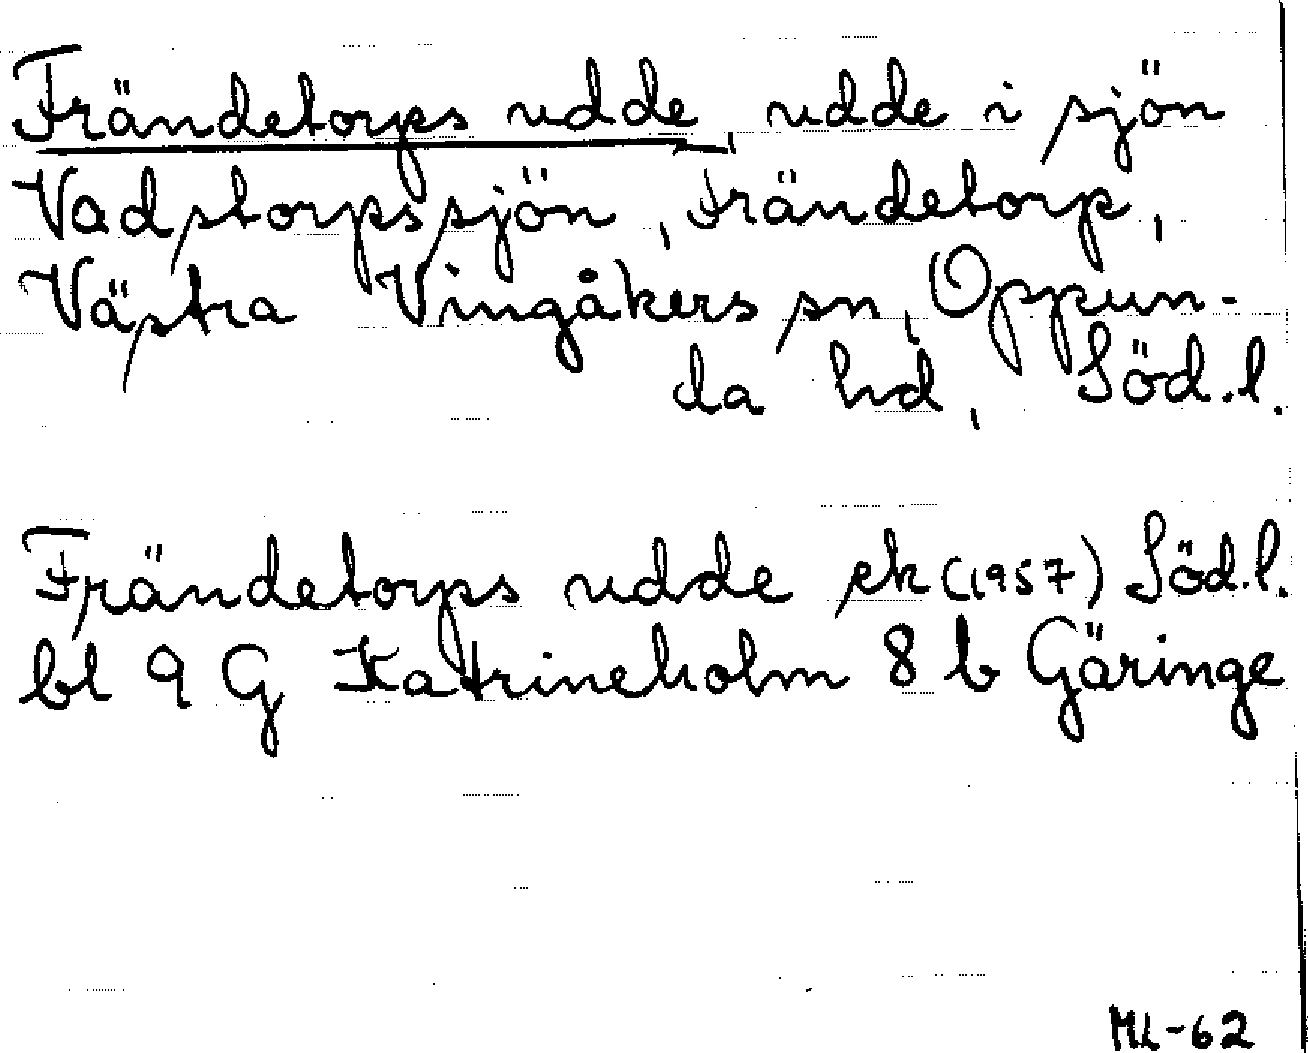 Frändetorps udde, udde i sjön
Vadstorpssjön, Frändetorp,
Västra Vingåkers sn, Oppun-
da hd, Söd.l.
Frändetorps udde ek (1957) Söd.l.
bl 9 G Katrineholm 8 b Gäringe
ML-62